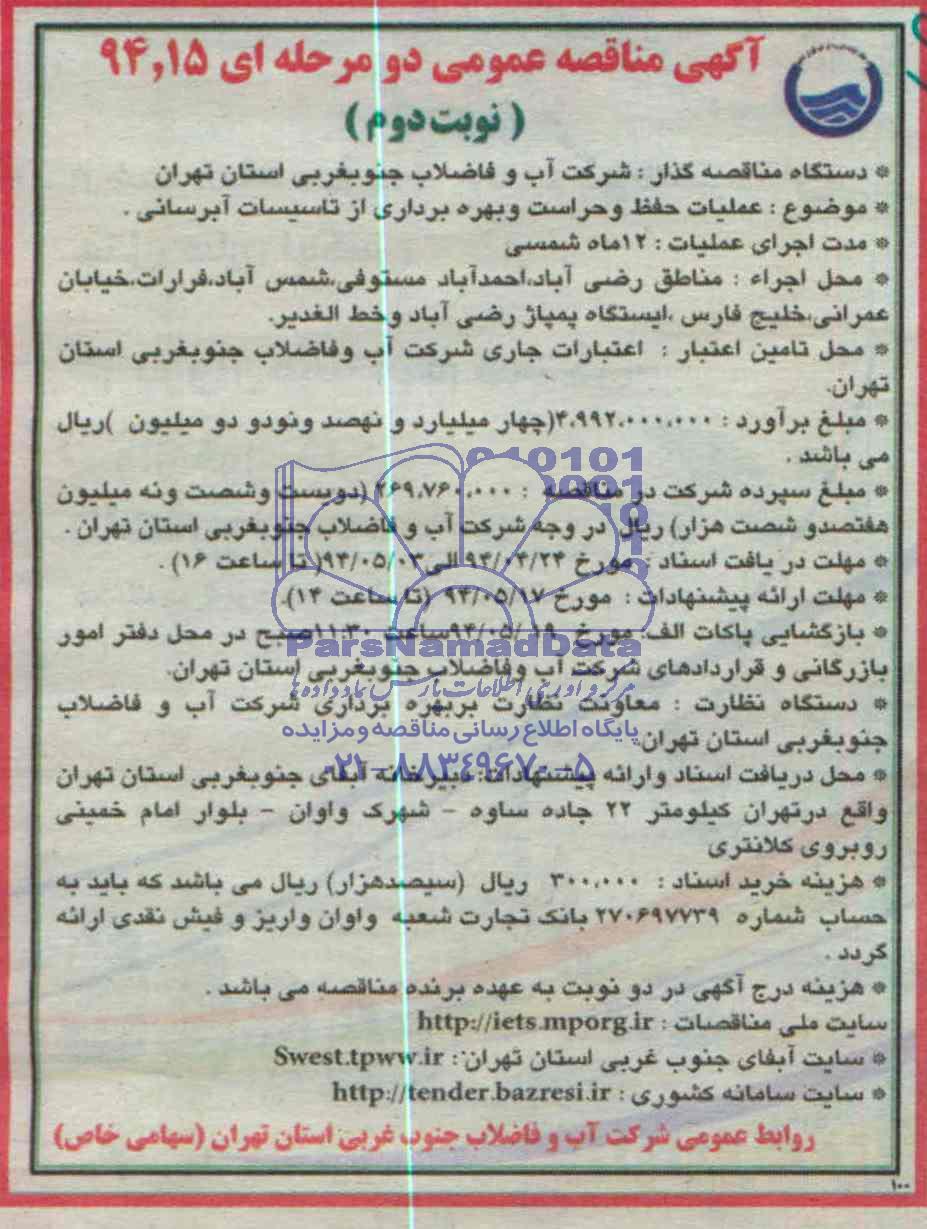 آگهی مناقصه عمومی دو مرحله ای ۹۴,۱۵
( نوبت دوم )
* دستگاه مناقصه گذار : شرکت آب و فاضلاب جنوبغربی استان تهران
* موضوع : عملیات حفظ وحراست وبهره برداری از تاسیسات آبرسانی .
* مدت اجرای عملیات : ۱۲ماه شمسی
* محل اجراء : مناطق رضی آباد،احمدآباد مستوفی،شمس آباد،فرارات،خیابان
عمرانی،خلیج فارس ،ایستگاه پمپاژ رضی آباد وخط الغدیر.
* محل تامین اعتبار : اعتبارات جاری شرکت آب وفاضلاب جنوبغربی استان
تهران.
* مبلغ برآورد : ۴،۹۹۲،۰۰۰،۰۰۰(چهار میلیارد و نهصد ونودو دو میلیون )ریال
می باشد .
* مبلغ سپرده شرکت در مناقصه : ۲۶۹،۷۶۰،۰۰۰ (دویست وشصت ونه میلیون
هفتصدو شصت هزار) ریال در وجه شرکت آب و فاضلاب جنوبغربی استان تهران .
* مهلت در یافت اسناد : مورخ ۹۴/۰۴/۲۴ الی۹۴/۰۵/۰۳( تا ساعت ۱۶) .
* مهلت ارائه پیشنهادات : مورخ ۹۴/۰۵/۱۷ (تا ساعت ۱۴).
* بازگشایی پاکات الف: مورخ ۹۴/۰۵/۱۹ساعت ۱۱:۳۰صبح در محل دفتر امور
بازرگانی و قراردادهای شرکت آب وفاضلاب جنوبغربی استان تهران.
* دستگاه نظارت : معاونت نظارت بربهره برداری شرکت آب و فاضلاب
جنوبغربی استان تهران.
* محل دریافت اسناد وارائه پیشنهادات: دبیرخانه آبفای جنوبغربی استان تهران
واقع درتهران کیلومتر ۲۲ جاده ساوه - شهرک واوان - بلوار امام خمینی
روبروی کلانتری
* هزینه خرید اسناد : ۳۰۰،۰۰۰ ریال (سیصدهزار) ریال می باشد که باید به
حساب شماره ۲۷۰۶۹۷۷۳۹ بانک تجارت شعبه واوان واریز و فیش نقدی ارائه
گردد .
* هزینه درج آگهی در دو نوبت به عهده برنده مناقصه می باشد .
سایت ملی مناقصات : http://iets.mporg.ir
* سایت آبفای جنوب غربی استان تهران: Swest.tpww.ir
* سایت سامانه کشوری : http://tender.bazresi.ir
روابط عمومی شرکت آب و فاضلاب جنوب غربی استان تهران (سهامی خاص)
۱۰۰
ParsNamadData
مرکز فرآوری اطلاعات پارس نماد داده ها
پایگاه اطلاع رسانی مناقصه و مزایده
۰۲۱-۸۸۳۴۹۶۷۰-۵